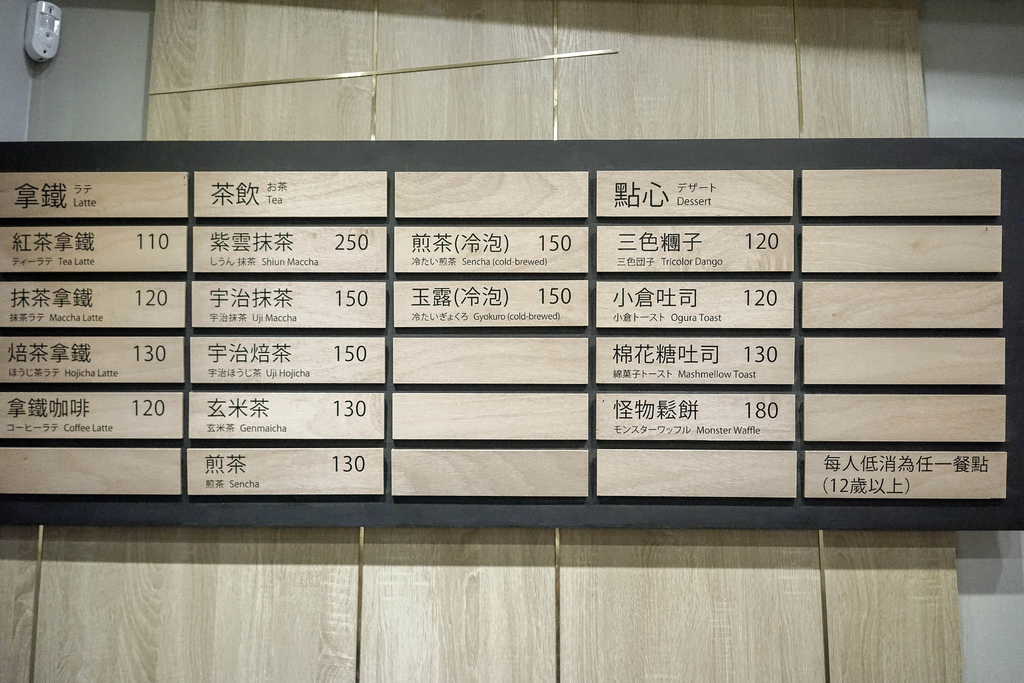 拿鐵 ラテ
Latte
紅茶拿鐵 110
ティーラテ Tea Latte
抹茶拿鐵 120
抹茶ラテ Maccha Latte
焙茶拿鐵 130
ほうじ茶ラテ Hojicha Latte
拿鐵咖啡 120
コーヒーラテ Coffee Latte
茶飲 お茶
Tea
紫雲抹茶 250
しうん 抹茶 Shiun Maccha
宇治抹茶 150
宇治抹茶 Uji Maccha
宇治焙茶 150
宇治ほうじ茶 Uji Hojicha
玄米茶 130
玄米茶 Genmaicha
煎茶 130
煎茶 Sencha
煎茶(冷泡) 150
冷たい煎茶 Sencha (cold-brewed)
玉露(冷泡) 150
冷たいぎょくろ Gyokuro (cold-brewed)
點心 デザート
Dessert
三色糰子 120
三色団子 Tricolor Dango
小倉吐司 120
小倉トースト Ogura Toast
棉花糖吐司 130
綿菓子トースト Mashmellow Toast
怪物鬆餅 180
モンスターワッフル Monster Waffle
每人低消為任一餐點
(12歲以上)